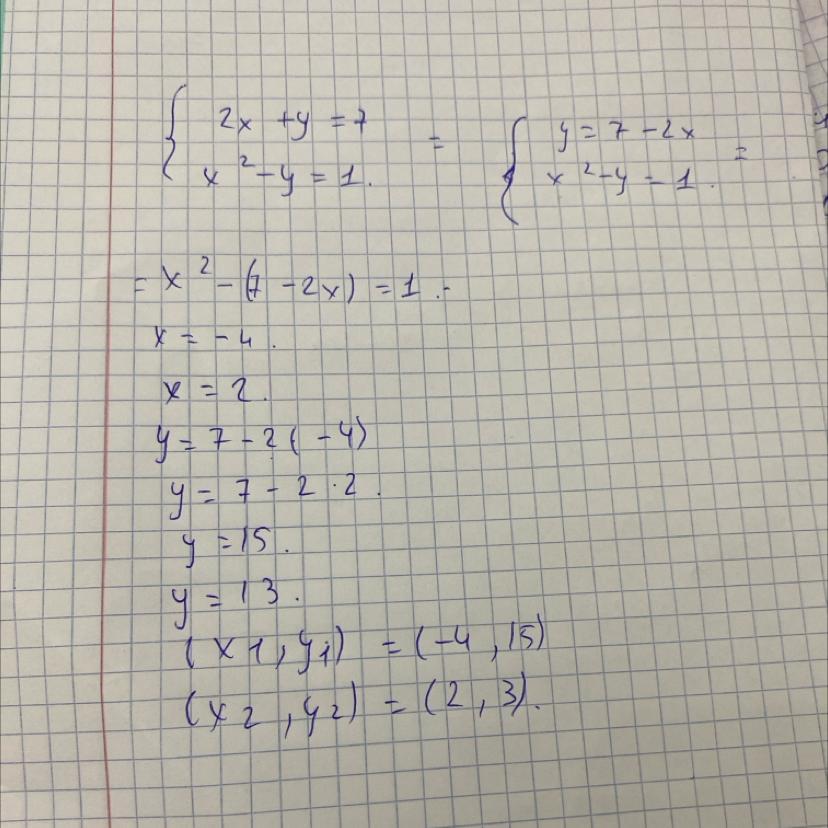 2x + y = 7 = y = 7 - 2x
x² - y = 1. x² - y = 1. =
= x² - (7 - 2x) = 1.-
x = -4.
x = 2.
y = 7 - 2( -4)
y = 7 - 2 · 2.
y = 15.
y = 13.
(x1, y1) = (-4, 15)
(x2, y2) = (2, 3).